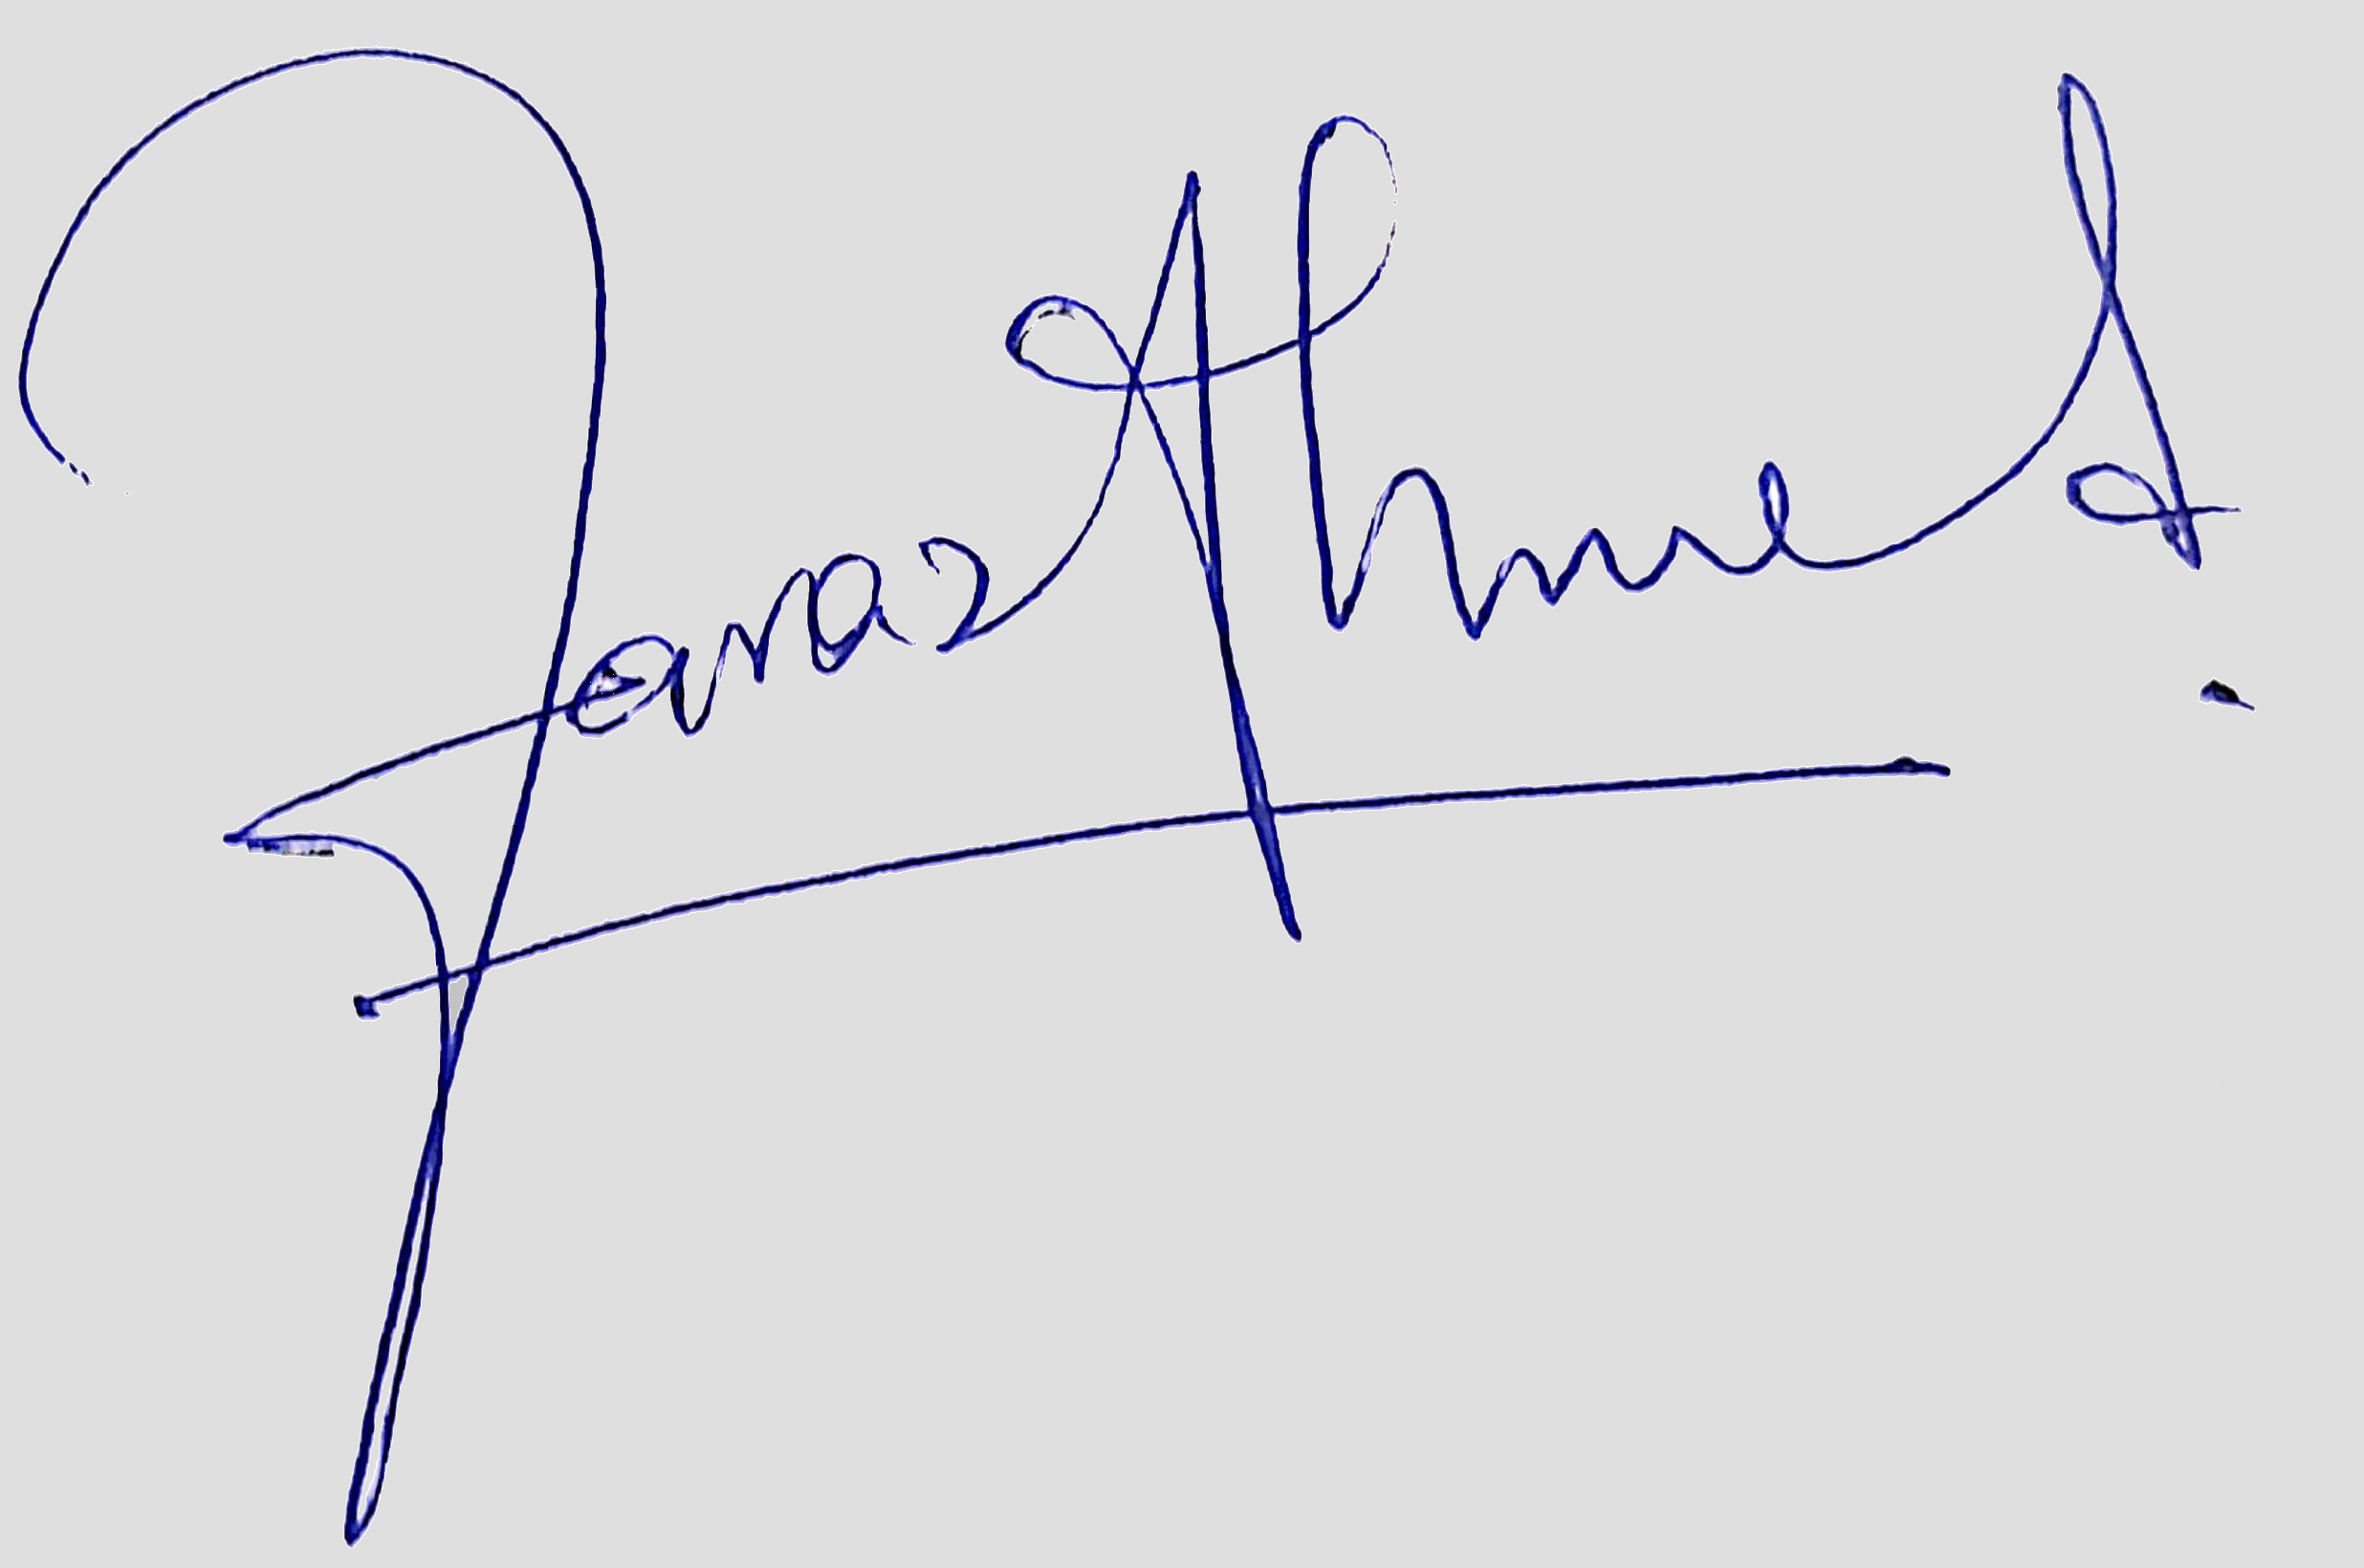 Faraz Ahmed